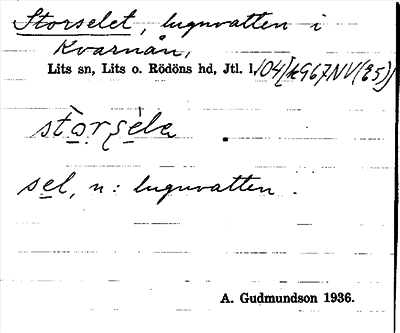 Storselet, lugnvatten i
Kvarnån,
Lits sn, Lits o. Rödöns hd, Jtl. l.
stòrsèle
sel, n: lugnvatten.
A. Gudmundson 1936.